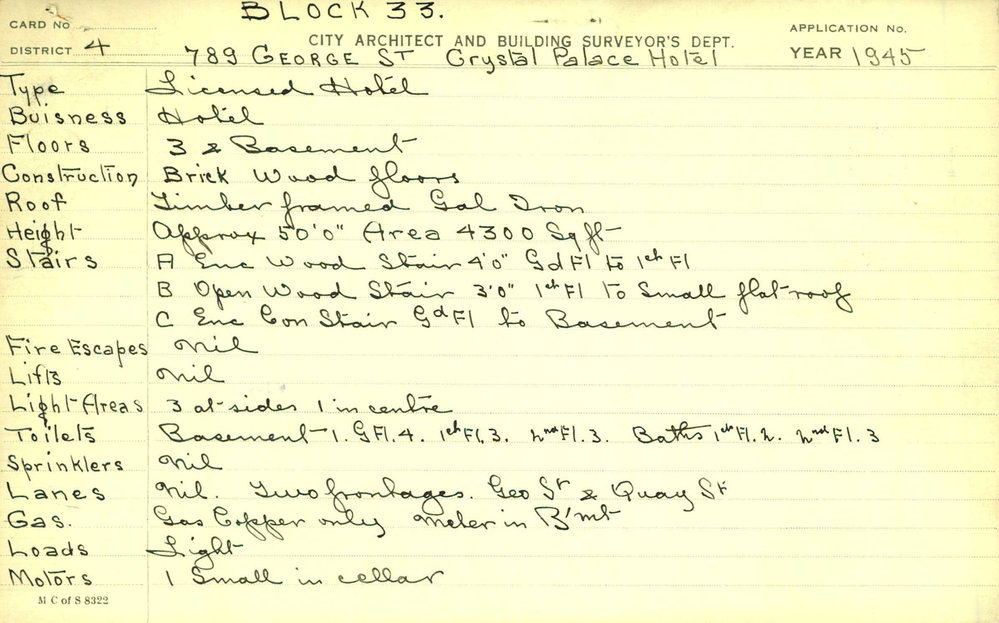 BLOCK 33.
CARD No
CITY ARCHITECT AND BUILDING SURVEYOR'S DEPT.
APPLICATION No.
DISTRICT 4
789 GEORGE ST Crystal Palace Hotel
YEAR 1945
Type Licensed Hotel
Buisness Hotel
Floors 3 & Basement
Construction Brick Wood floors
Roof Timber framed Gal Iron
Height Approx 50'0" Area 4300 Sq ft
Stairs A Enc Wood Stair 4'0" Gd Fl to 1st Fl
B Open Wood Stair 3'0" 1st Fl to Small flat roof
C Enc Con Stair Gd Fl to Basement
Fire Escapes Nil
Lifts Nil
Light Areas 3 at sides 1 in centre
Toilets Basement 1. G Fl. 4. 1st Fl. 3. 2nd Fl. 3. Baths 1st Fl. 2. 2nd Fl. 3
Sprinklers Nil
Lanes Nil. Two frontages. Geo St & Quay St
Gas. Gas Copper only meter in B'mt
Loads Light
Motors 1 Small in cellar
M C of S 8322